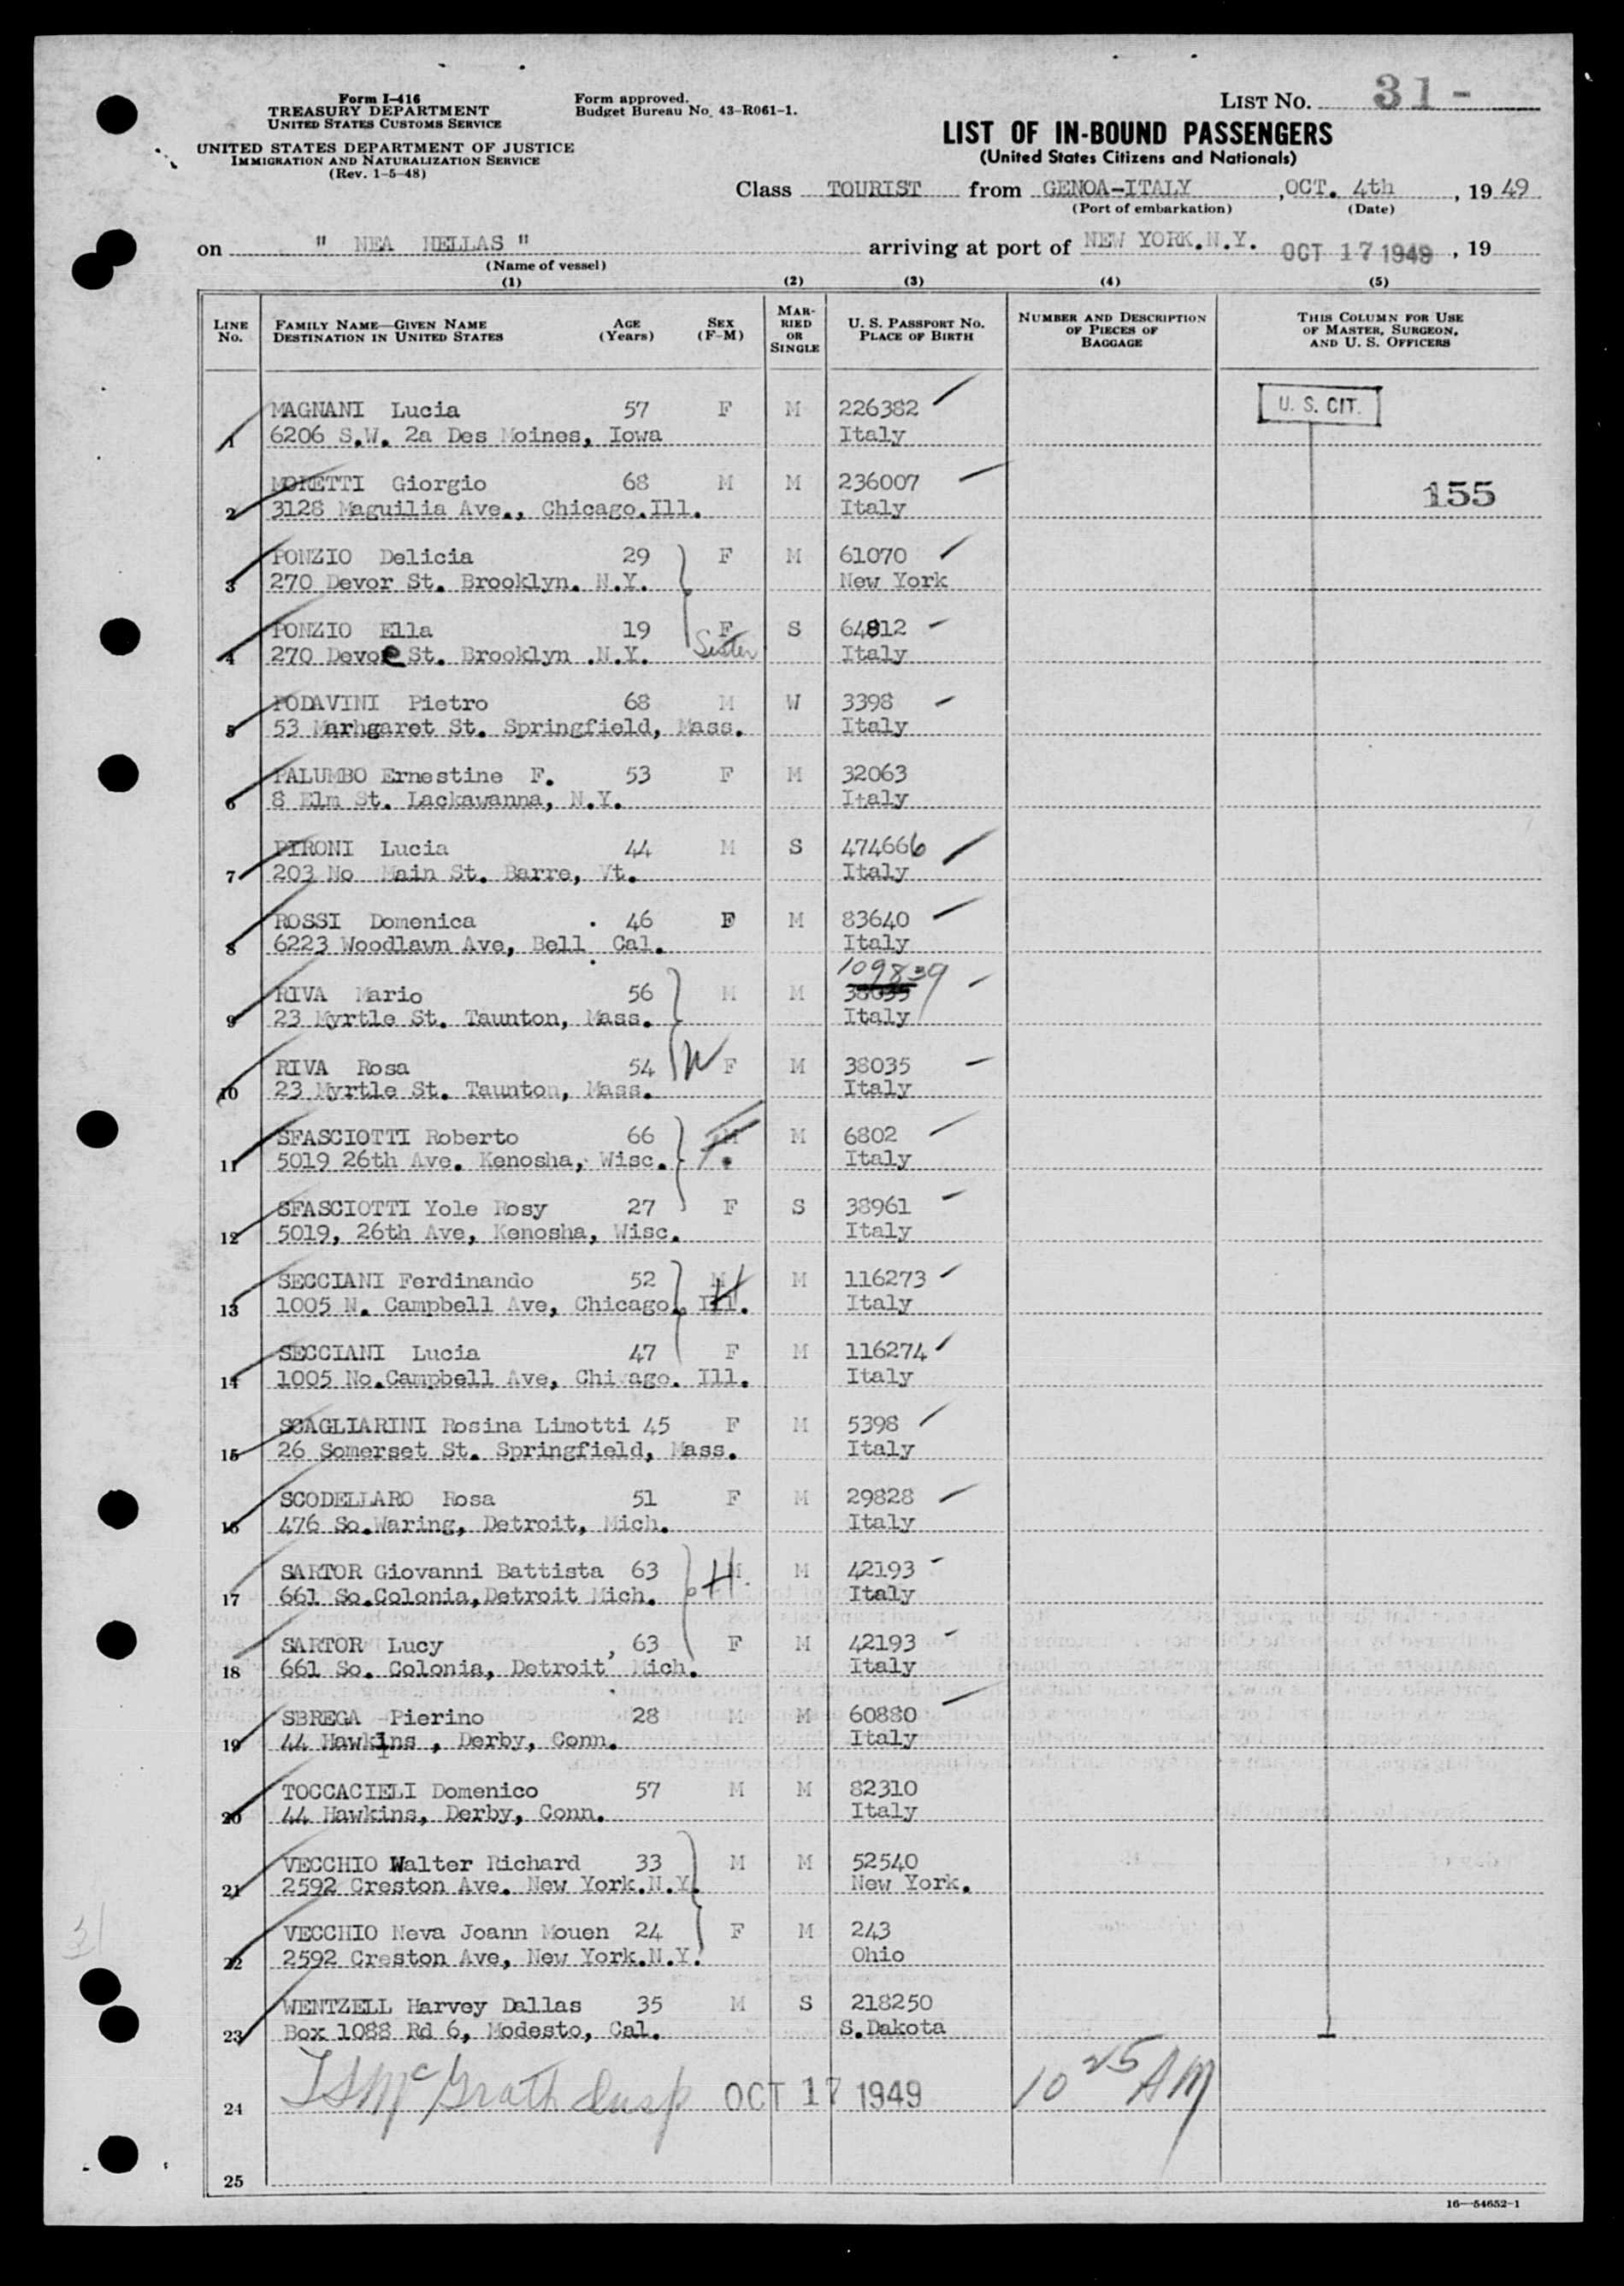 Form I-416
TREASURY DEPARTMENT
UNITED STATES CUSTOMS SERVICE
UNITED STATES DEPARTMENT OF JUSTICE
IMMIGRATION AND NATURALIZATION SERVICE
(Rev. 1-5-48)
Form approved.
Budget Bureau No. 43-R061-1.
LIST NO. 31-
LIST OF IN-BOUND PASSENGERS
(United States Citizens and Nationals)
Class TOURIST from GENOA-ITALY , OCT. 4th , 19 49
(Port of embarkation) (Date)
on " NEA HELLAS " arriving at port of NEW YORK.N.Y. OCT 17 1949 , 19
(Name of vessel)
(1) (2) (3) (4) (5)
LINE NO. FAMILY NAME—GIVEN NAME DESTINATION IN UNITED STATES AGE (Years) SEX (F-M) MARRIED OR SINGLE U. S. PASSPORT NO. PLACE OF BIRTH NUMBER AND DESCRIPTION OF PIECES OF BAGGAGE THIS COLUMN FOR USE OF MASTER, SURGEON, AND U. S. OFFICERS
MAGNANI Lucia 57 F M 226382 U. S. CIT.
1 6206 S.W. 2a Des Moines, Iowa Italy
MORETTI Giorgio 68 M M 236007 155
2 3128 Maguilia Ave., Chicago.Ill. Italy
PONZIO Delicia 29 F M 61070
3 270 Devor St. Brooklyn. N.Y. New York
PONZIO Ella 19 F S 64812
4 270 Devoe St. Brooklyn .N.Y. Sister Italy
PODAVINI Pietro 68 M W 3398
5 53 Marhgaret St. Springfield, Mass. Italy
PALUMBO Ernestine F. 53 F M 32063
6 8 Elm St. Lackawanna, N.Y. Italy
PIRONI Lucia 44 M S 474666
7 203 No Main St. Barre, Vt. Italy
ROSSI Domenica 46 F M 83640
8 6223 Woodlawn Ave, Bell Cal. Italy
109839
RIVA Mario 56 M M 38035
9 23 Myrtle St. Taunton, Mass. Italy
RIVA Rosa 54 W F M 38035
10 23 Myrtle St. Taunton, Mass. Italy
SFASCIOTTI Roberto 66 M M 6802
11 5019 26th Ave. Kenosha, Wisc. F. Italy
SFASCIOTTI Yole Rosy 27 F S 38961
12 5019, 26th Ave, Kenosha, Wisc. Italy
SECCIANI Ferdinando 52 M H M 116273
13 1005 N. Campbell Ave, Chicago., Ill. Italy
SECCIANI Lucia 47 F M 116274
14 1005 No.Campbell Ave, Chi ago. Ill. Italy
SCAGLIARINI Rosina Limotti 45 F M 5398
15 26 Somerset St. Springfield, Mass. Italy
SCODELLARO Rosa 51 F M 29828
16 476 So.Waring, Detroit, Mich. Italy
SARTOR Giovanni Battista 63 H. M M 42193
17 661 So.Colonia,Detroit Mich. Italy
SARTOR Lucy , 63 F M 42193
18 661 So. Colonia, Detroit Mich. Italy
SBREGA -Pierino 28 M M 60880
19 44 Hawkins , Derby, Conn. Italy
TOCCACIELI Domenico 57 M M 82310
20 44 Hawkins, Derby, Conn. Italy
VECCHIO Walter Richard 33 M M 52540
21 2592 Creston Ave. New York.N.Y. New York.
VECCHIO Neva Joann Mouen 24 F M 243
22 2592 Creston Ave, New York.N.Y. Ohio
31
WENTZELL Harvey Dallas 35 M S 218250
23 Box 1088 Rd 6, Modesto, Cal. S.Dakota
24 McGrath Insp OCT 17 1949 10 25 AM
25
16—54652-1